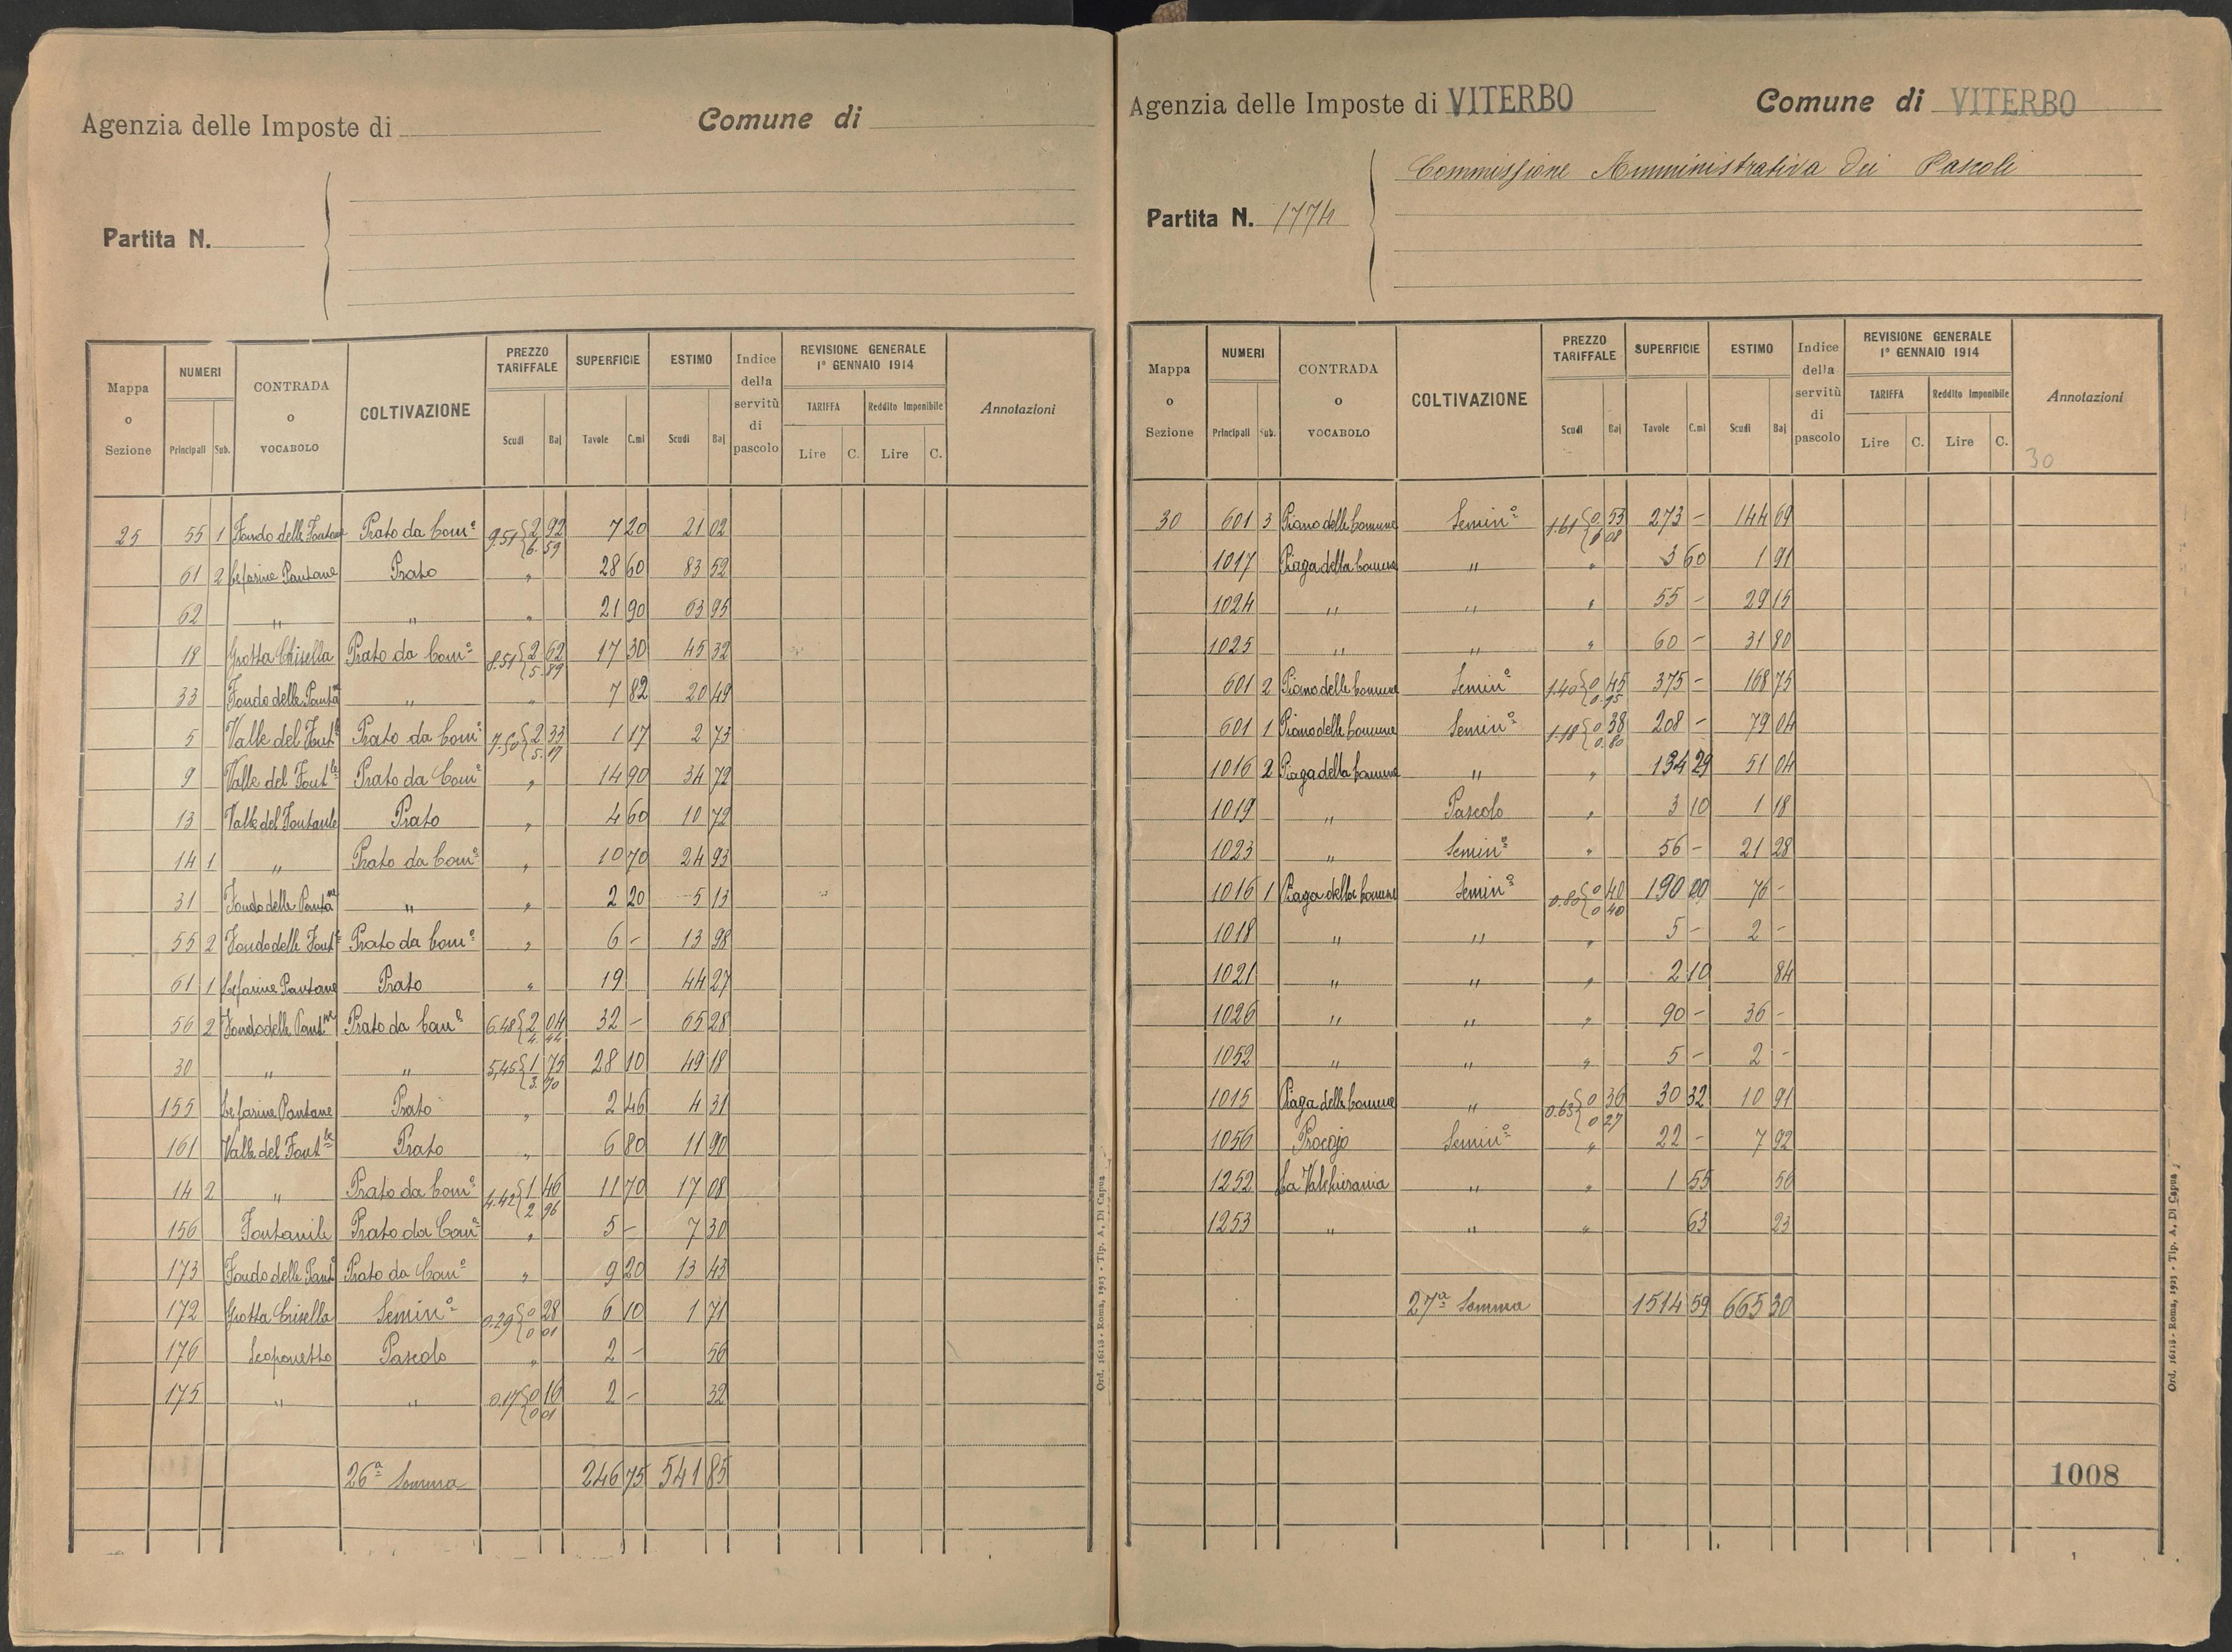 Agenzia delle Imposte di
Comune di
Partita N.
Mappa o Sezione
NUMERI
Principali
Sub.
CONTRADA o VOCABOLO
COLTIVAZIONE
PREZZO TARIFFALE
Scudi
Baj
SUPERFICIE
Tavole
C.mi
ESTIMO
Scudi
Baj
Indice della servitù di pascolo
REVISIONE GENERALE
1° GENNAIO 1914
TARIFFA
Reddito Imponibile
Lire C. Lire C.
Annotazioni
25 55 1 Fondo delle Fontane Prato da Com° 9.51 { 2 92 / 6. 59 7 20 21 02
61 2 Pantane Prato " 28 60 83 52
62 " " " 21 90 63 95
18 Grotta Crisella Prato da Com° 8.51 { 2 62 / 5. 89 17 30 45 32
33 Fondo delle Panta ne " " 7 82 20 49
5 Valle del Font le Prato da Com° 7.50 { 2 33 / 5. 17 1 17 2 73
9 Valle del Font le Prato da Com° " 14 90 34 72
13 Valle del Fontanile Prato " 4 60 10 72
14 1 " Prato da Com° " 10 70 24 93
31 Fondo delle Panta ne " " 2 20 5 13
55 2 Fondo delle Font e Prato da Com° " 6 - 13 98
61 1 Pantane Prato " 19 44 27
56 2 Fondo delle Pant ne Prato da Com° 6.48 { 2 04 / 4. 44 32 - 65 28
30 " " 5,45 { 1 75 / 3. 70 28 10 49 18
155 Pantane Prato " 2 46 4 31
161 Valle del Font le Prato " 6 80 11 90
14 2 " Prato da Com° 4.42 { 1 46 / 2 96 11 70 17 08
156 Fontanile Prato da Com° " 5 - 7 30
173 Fondo delle Pant e Prato da Com° " 9 20 13 43
172 Grotta Crisella Semin° 0.29 { 0 28 / 0 01 6 10 1 71
176 Scoponetto Pascolo " 2 - 56
175 " " 0.17 { 0 16 / 0 01 2 - 32
26ª Somma 246 75 541 85
Ord. 16118 - Roma, 1923 - Tip. A. Di Capua
Agenzia delle Imposte di VITERBO
Comune di VITERBO
Commissione Amministrativa dei Pascoli
Partita N. 1774
Mappa o Sezione
NUMERI
Principali
Sub.
CONTRADA o VOCABOLO
COLTIVAZIONE
PREZZO TARIFFALE
Scudi
Baj
SUPERFICIE
Tavole
C.mi
ESTIMO
Scudi
Baj
Indice della servitù di pascolo
REVISIONE GENERALE
1° GENNAIO 1914
TARIFFA
Reddito Imponibile
Lire C. Lire C.
Annotazioni
30
30 601 3 Piano delle Comune Semin° 1.61 { 0 53 / 1 08 273 - 144 69
1017 Piaga della Comune " " 3 60 1 91
1024 " " " 55 - 29 15
1025 " " " 60 - 31 80
601 2 Piano delle Comune Semin° 1.40 { 0 45 / 0. 95 375 - 168 75
601 1 Piano delle Comune Semin° 1.18 { 0 38 / 0. 80 208 - 79 04
1016 2 Piaga della Comune " " 134 29 51 04
1019 " Pascolo " 3 10 1 18
1023 " Semin° " 56 - 21 28
1016 1 Piaga della Comune Semin° 0.80 { 0 40 / 0 40 190 00 76 -
1018 " " " 5 - 2 -
1021 " " " 2 10 84
1026 " " " 90 - 36 -
1052 " " " 5 - 2 -
1015 Piaga delle Comune " 0.63 { 0 36 / 0 27 30 32 10 91
1056 Procojo Semin° " 22 - 7 92
1252 La " " 1 55 56
1253 " " " 63 23
27ª Somma 1514 59 665 30
1008
Ord. 16118 - Roma, 1923 - Tip. A. Di Capua